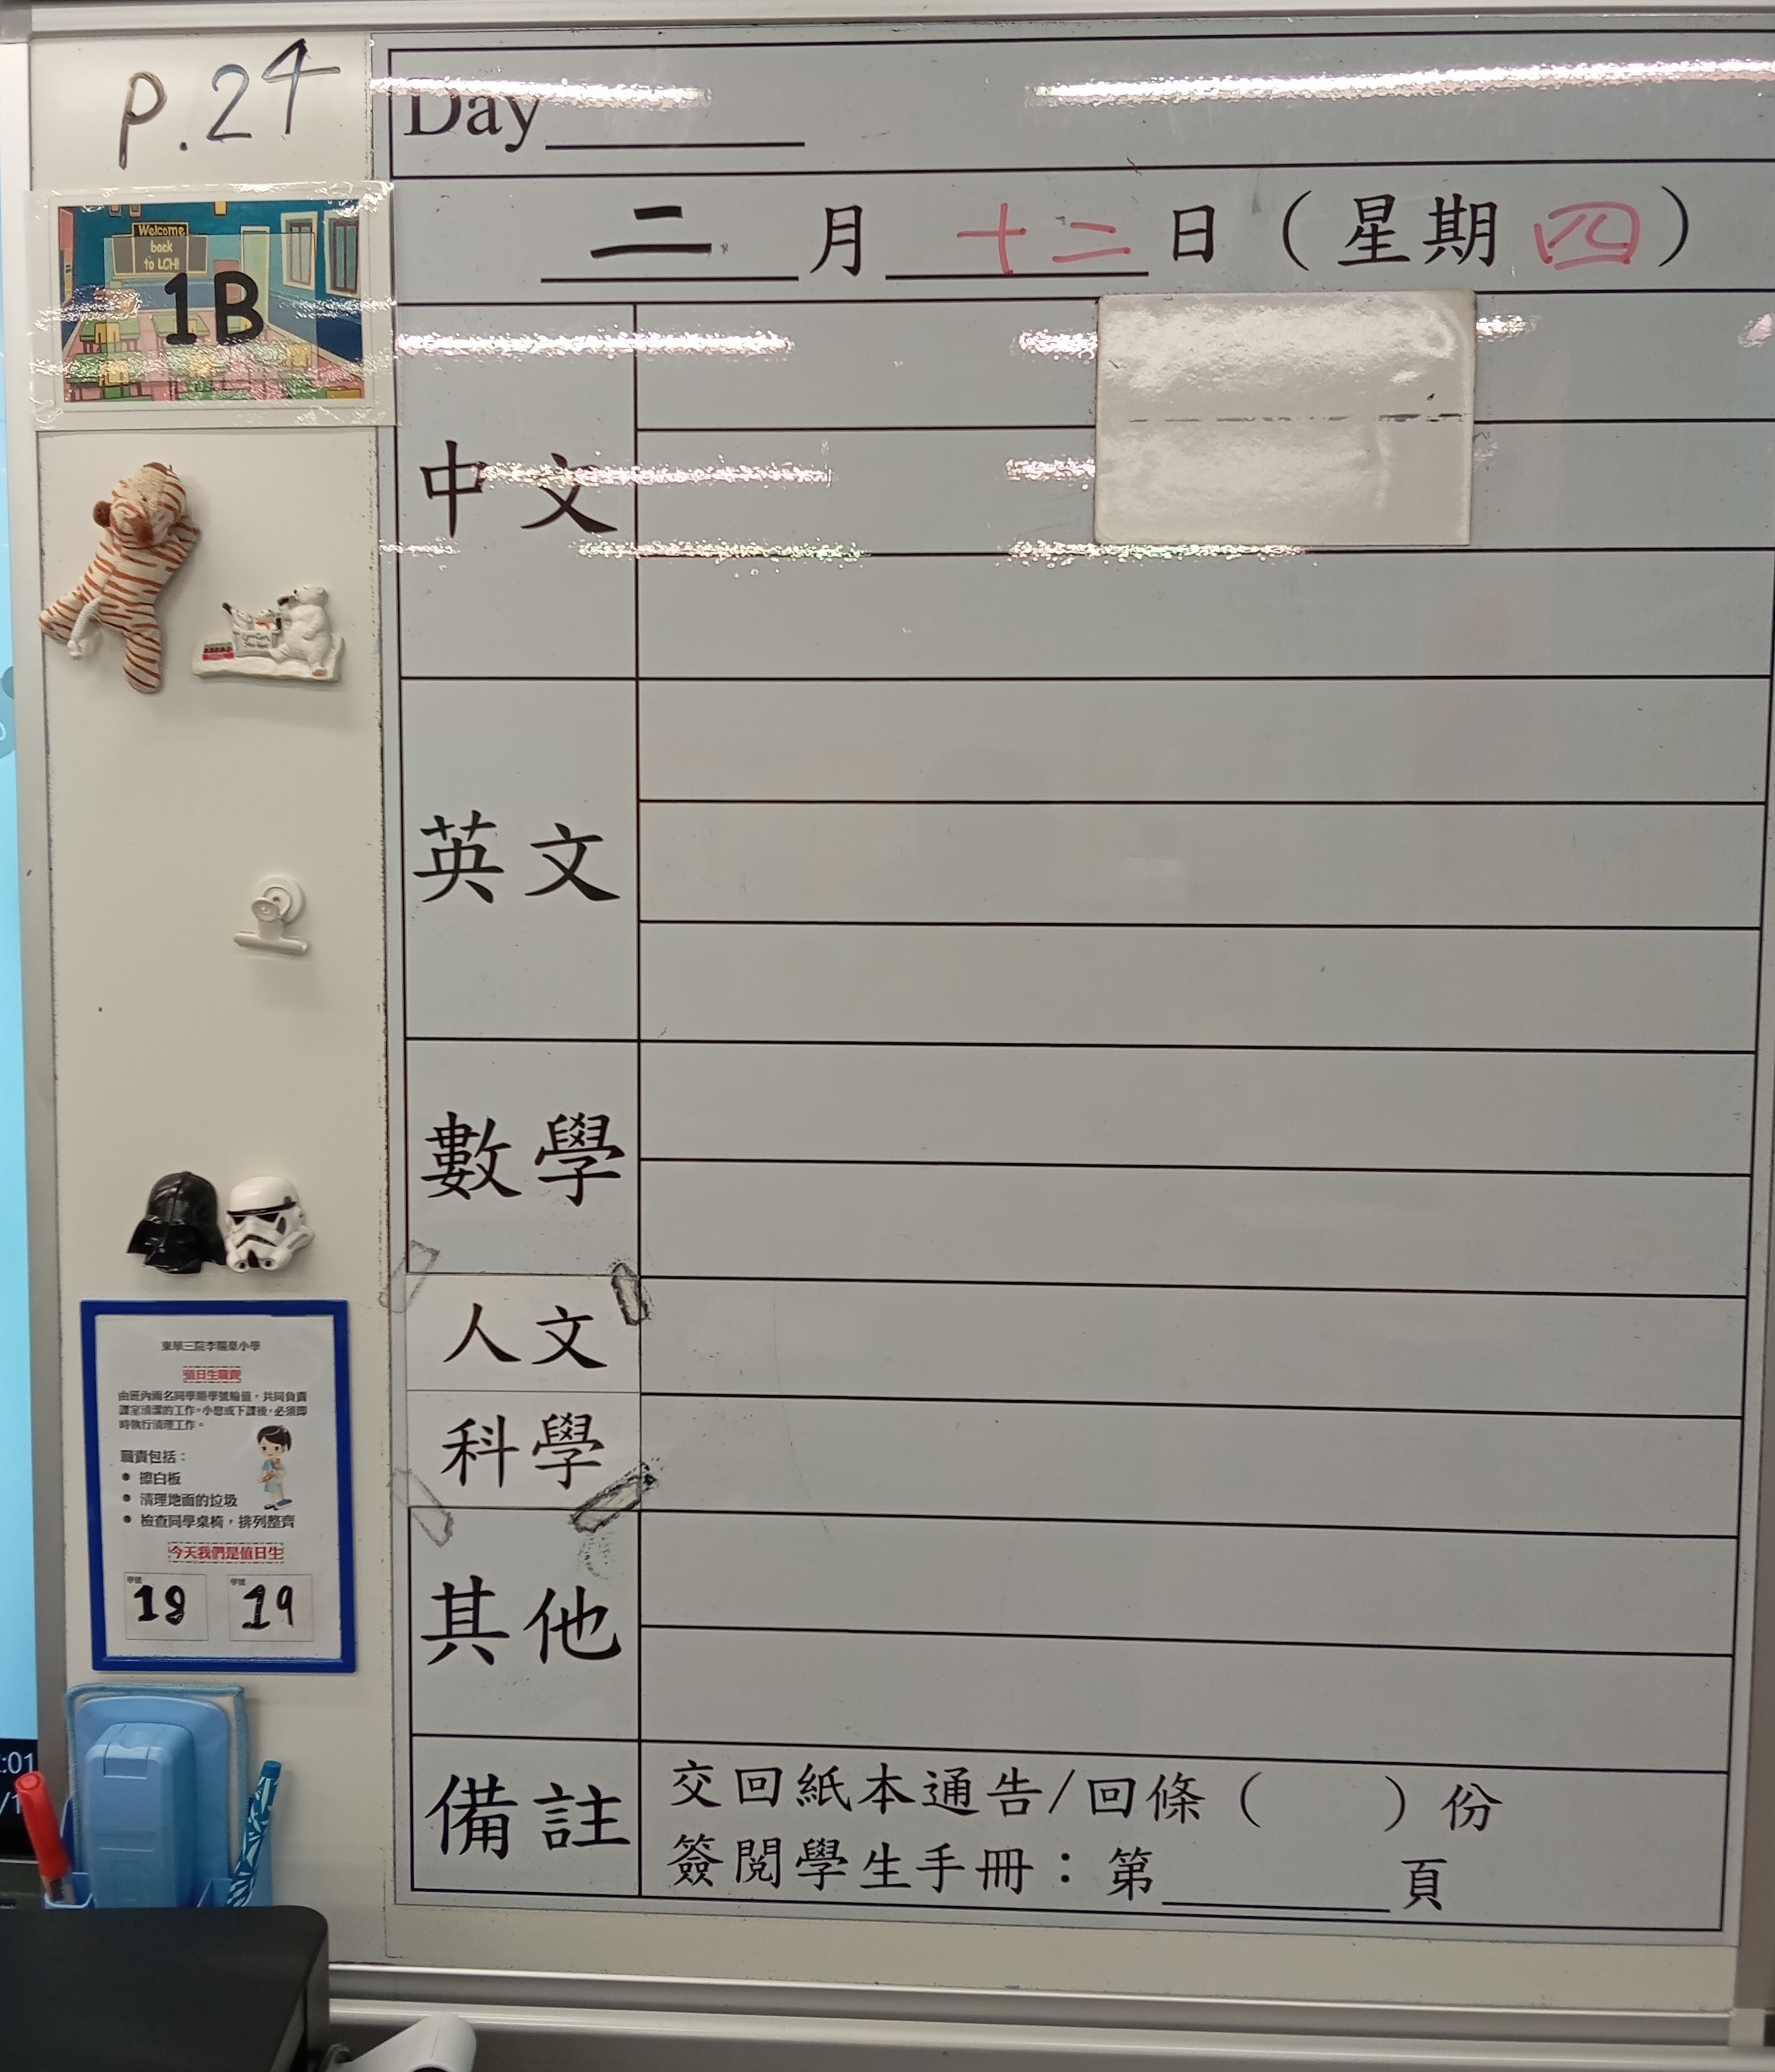 p.24
Day
二月十二日（星期四）
Welcome
back
to LCH!
1B
中文
英文
數學
人文
科學
東華三院李賜豪小學
值日生職責
由班內兩名同學順學號輪值，共同負責
課室清潔的工作。小息或下課後，必須即
時執行清理工作。
職責包括：
● 擦白板
● 清理地面的垃圾
● 檢查同學桌椅，排列整齊
今天我們是值日生
學號 18 學號 19
其他
備註
交回紙本通告/回條（ ）份
簽閱學生手冊：第 頁
:01